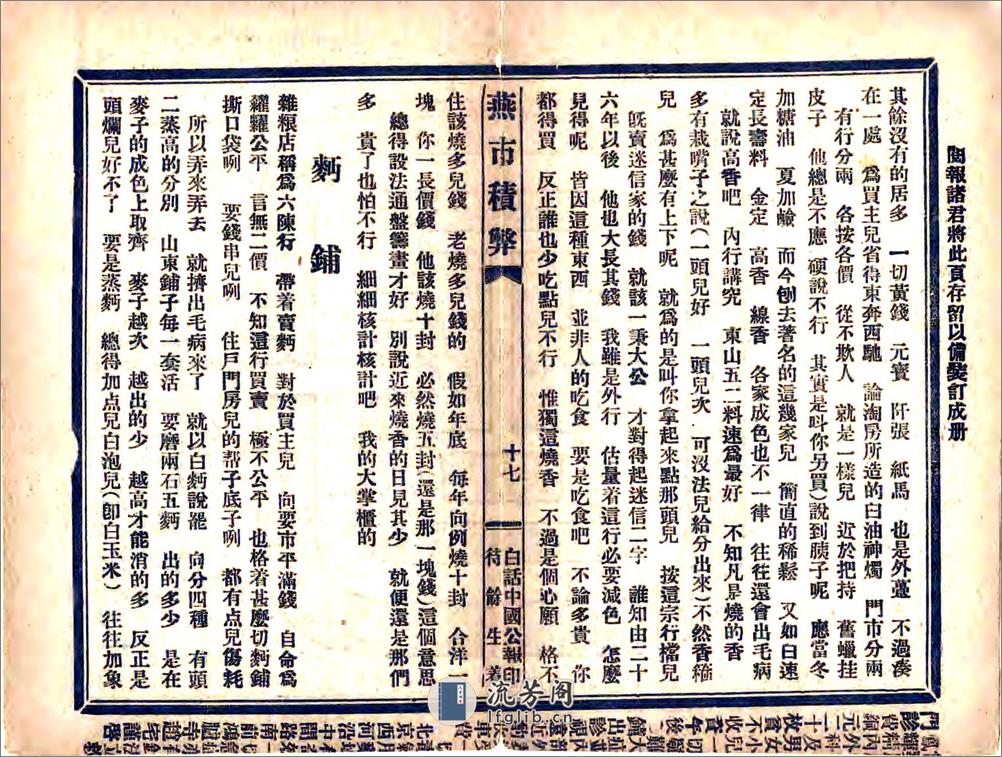 閱報諸君將此頁存留以備裝訂成册
其餘沒有的居多　一切黃錢　元寶　阡張　紙馬　也是外蕓　不過凑
在一處　爲買主兒省得東奔西馳　論淘房所造的白油神燭　門市分兩
有行分兩　各按各價　從不欺人　就是一樣兒　近於把持　舊蠟挂
皮子　他總是不應　硬說不行　其實是呌你另買）說到胰子呢　應當冬
加糖油　夏加鹼　而今刨去著名的這幾家兒　簡直的稀鬆　又如白速
定長壽料　金定　高香　線香　各家成色也不一律　往往還會出毛病
就說高香吧　內行講究　東山五二料速爲最好　不知凡是燒的香
多有栽嘴子之說（一頭兒好　一頭兒次　可沒法兒給分出來）不然香籤
兒　爲甚麼有上下呢　就爲的是叫你拿起來点那頭兒　按這宗行檔兒
旣賣迷信家的錢　就該一秉大公　才對得起迷信二字　誰知由二十
六年以後　他也大長其錢　我雖是外行　估量着這行必要減色　怎麼
見得呢　皆因這種東西　並非人的吃食　要是吃食吧　不論多貴　你
都得買　反正誰也少吃點兒不行　惟獨這燒香　不過是個心願　格不
燕市積弊
十七
白話中國公報印
待餘生著
住該燒多兒錢　老燒多兒錢的　假如年底　每年向例燒十封　合洋一
塊　你一長價錢　他該燒十封　必然燒五封（還是那一塊錢）這個意思
總得設法通盤籌畫才好　別說近來燒香的日見其少　就便還是那們
多　貴了也怕不行　細細核計核計吧　我的大掌櫃的
麪鋪
雜粮店稱爲六陳行　帶着賣麪　對於買主兒　向要市平滿錢　自命爲
糴糶公平　言無二價　不知這行買賣　極不公平　也格着甚麼切麪鋪
撕口袋咧　要錢串兒咧　住戶門房兒的帮子底子咧　都有点兒傷耗
所以弄來弄去　就擠出毛病來了　就以白麪說罷　向分四種　有頭
二蒸高的分別　山東鋪子每一套活　要磨兩石五麪　出的多少　是在
麥子的成色上取齊　麥子越次　越出的少　越高才能消的多　反正是
頭爛兒好不了　要是蒸麪　總得加点兒白泡兒（卽白玉米）往往加象
流芳阁
lfglib.cn